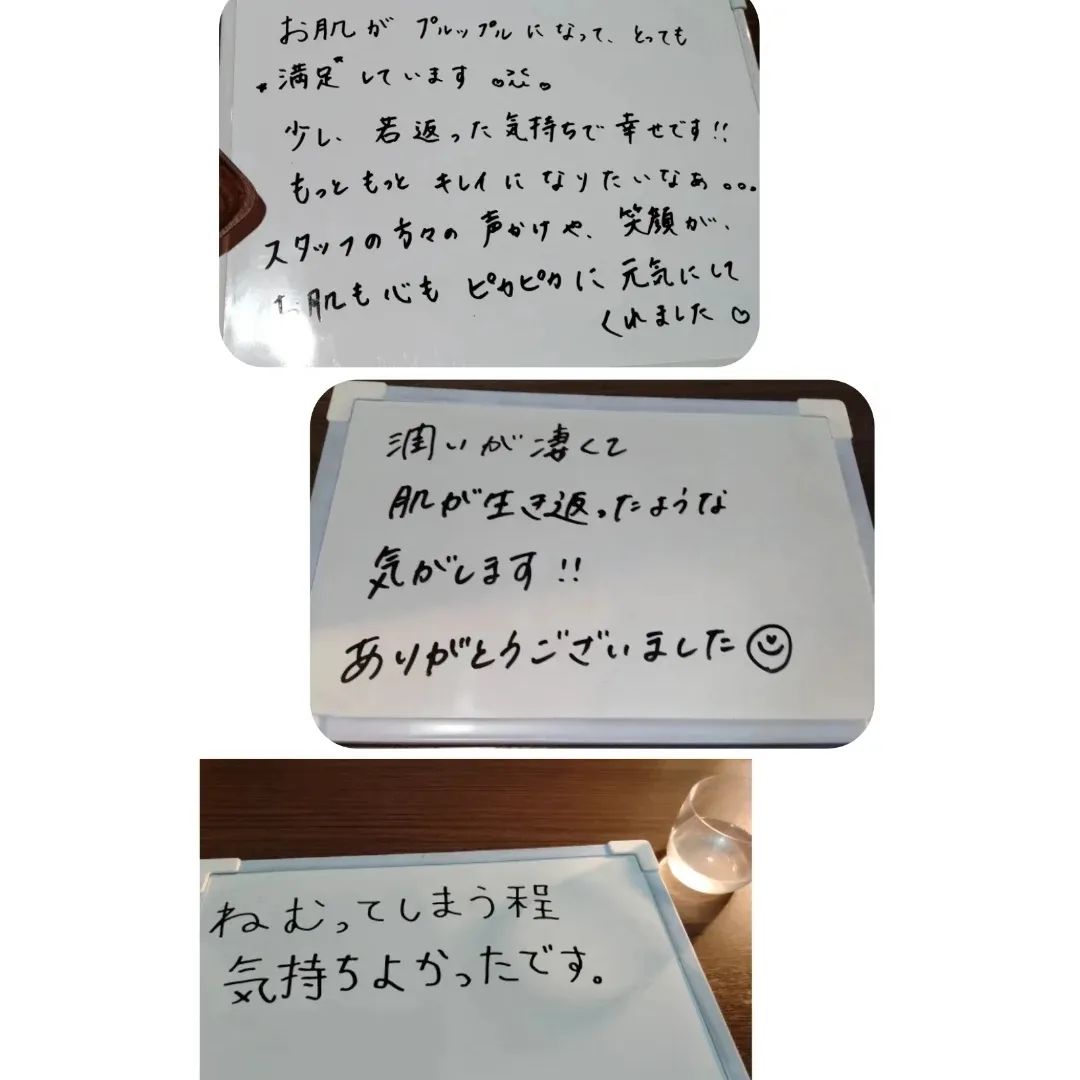 お肌が プルップルになって、とっても
"満足"しています
少し、若返った気持ちで幸せです!!
もっともっと キレイになりたいなぁ。。。
スタッフの方々の声かけや、笑顔が、
お肌も心も ピカピカに元気にして
くれました♡
潤いが凄くて
肌が生き返ったような
気がします!!
ありがとうございました
ねむってしまう程
気持ちよかったです。